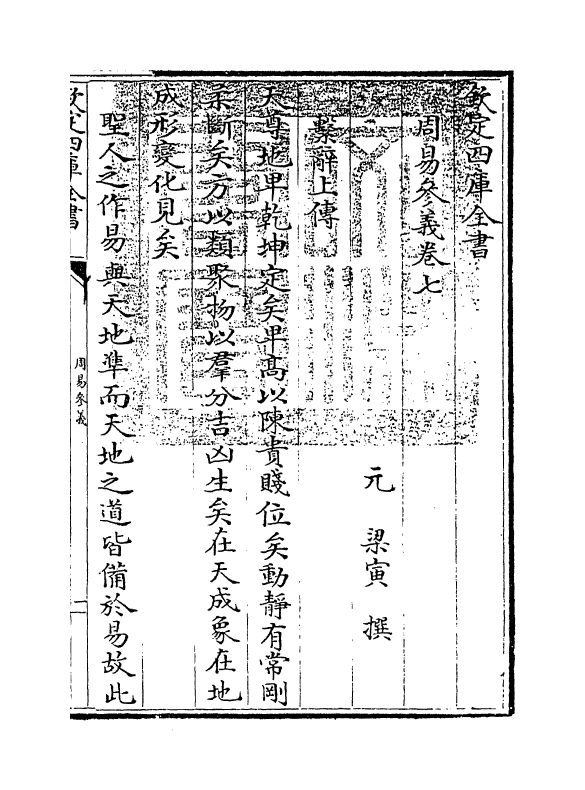 欽定四庫全書
周易參義卷七
元 梁寅 撰
繫辭上傳
天尊地卑乾坤定矣卑高以陳貴賤位矣動靜有常剛
柔斷矣方以類聚物以羣分吉凶生矣在天成象在地
成形變化見矣
聖人之作易與天地準而天地之道皆備於易故此
欽定四庫全書
周易參義